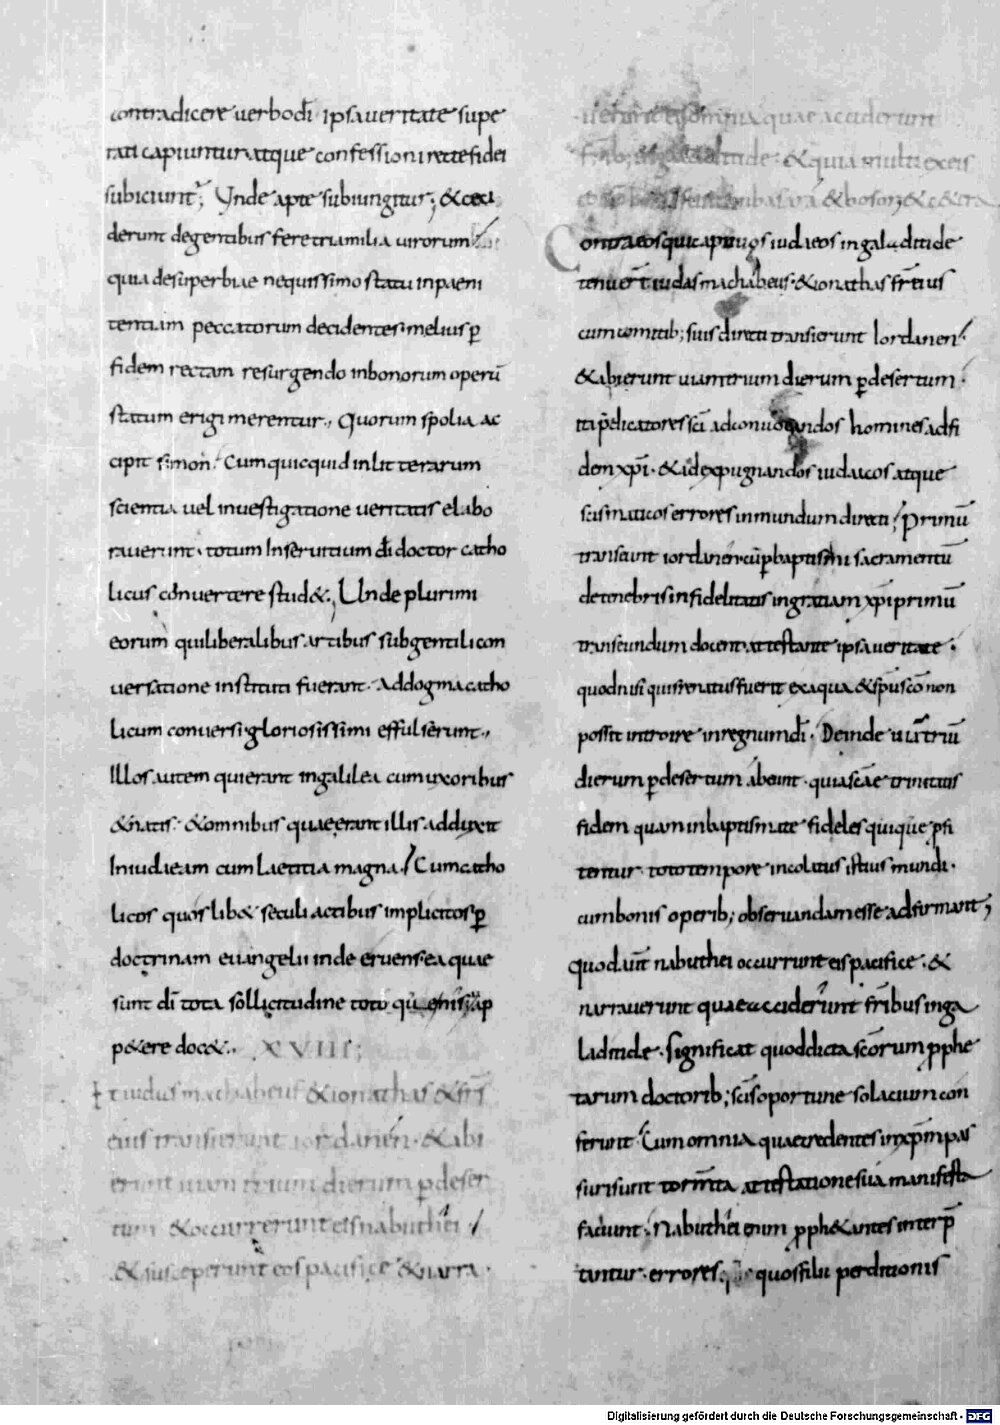 contradicere uerbo dī ipsa ueritate supe
rati capiuntur atque confessioni recte fidei
subiciunt᷑; Unde apte subiungitur; & ceci
derunt de gentibus fere tria milia uirorum
quia de superbiae nequissimo statu in paeni
tentiam peccatorum decidentes melius ꝑ
fidem rectam resurgendo in bonorum operū
statum erigi merentur., Quorum spolia ac
cipit simon. Cum quicquid in litterarum
scientia uel inuestigatione ueritatis elabo
rauerunt. totum In seruitium dī doctor catho
licus conuertere stud&., Unde plurimi
eorum qui liberalibus artibus sub gentili con
uersatione instituti fuerant. Ad dogma catho
licum conuersi gloriosissimi effulserunt.,
Illos autem qui erant in galilea cum uxoribus
& natis. & omnibus quae erant illis adduxit
In iudaeam cum laetitia magna./ Cum catho
licos quos lib& seculi actibus implicitos ꝑ
doctrinam euangelii inde eruens ea quae
sunt dī tota sollicitudine toto
p&ere doc&.. XVIII;
Et iudas machabeus & ionathas & fr̄s
eius transierunt iordanen. & abi
erunt uiam trium dierum ꝑ deser
tum & occurrerunt eis nabuthei /
& susceperunt eos pacifice & narra.
omnia quae acciderunt
& quia multi ex eis
& bosor
Contra eos qui captiuos iudaeos in galaditide
tenuer̄t iudas machabeus. & ionathas fr̄ eius
cum comitib; suis directi transierunt Iordanen/
& abierunt uiam trium dierum ꝑ desertum.
ita p̄dicatores sc̄i ad conuocandos homines ad fi
dem xp̄i. & ad expugnandos iudaicos atque
scismaticos errores in mundum directi / Primū
transeunt iordanen cū ꝑ baptismi sacramentū
de tenebris infidelitatis in gratiam xp̄i primū
transeundum docent attestante ipsa ueritate.
quod nisi quis renatus fuerit ex aqua & sp̄u sc̄o non
possit introire in regnum dī. Deinde uiā triū
dierum ꝑ desertum abeunt. quia sc̄ae trinitatis
fidem quam in baptismate fideles quique ꝓfi
tentur. toto tempore incolatus istius mundi.
cum bonis operib; obseruandam esse adfirmant;
Quod aut̄ nabuthei occurrunt eis pacifice. &
narrauerunt quae acciderunt fr̄ibus in ga
laditide. significat quod dicta sc̄orum ꝓphe
tarum doctorib; sc̄is oportune solacium con
ferunt. Cum omnia quae credentes in xp̄m pas
suri sunt torm̄ta attestatione sua manifesta
faciunt. Nabuthei enim ꝓph&antes interp̄
tantur. errores quos filii perditionis